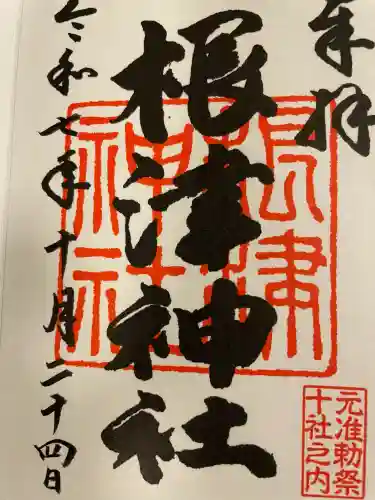 奉拝
根津神社
根津神社
元准勅祭
十社之内
令和七年十月二十四日